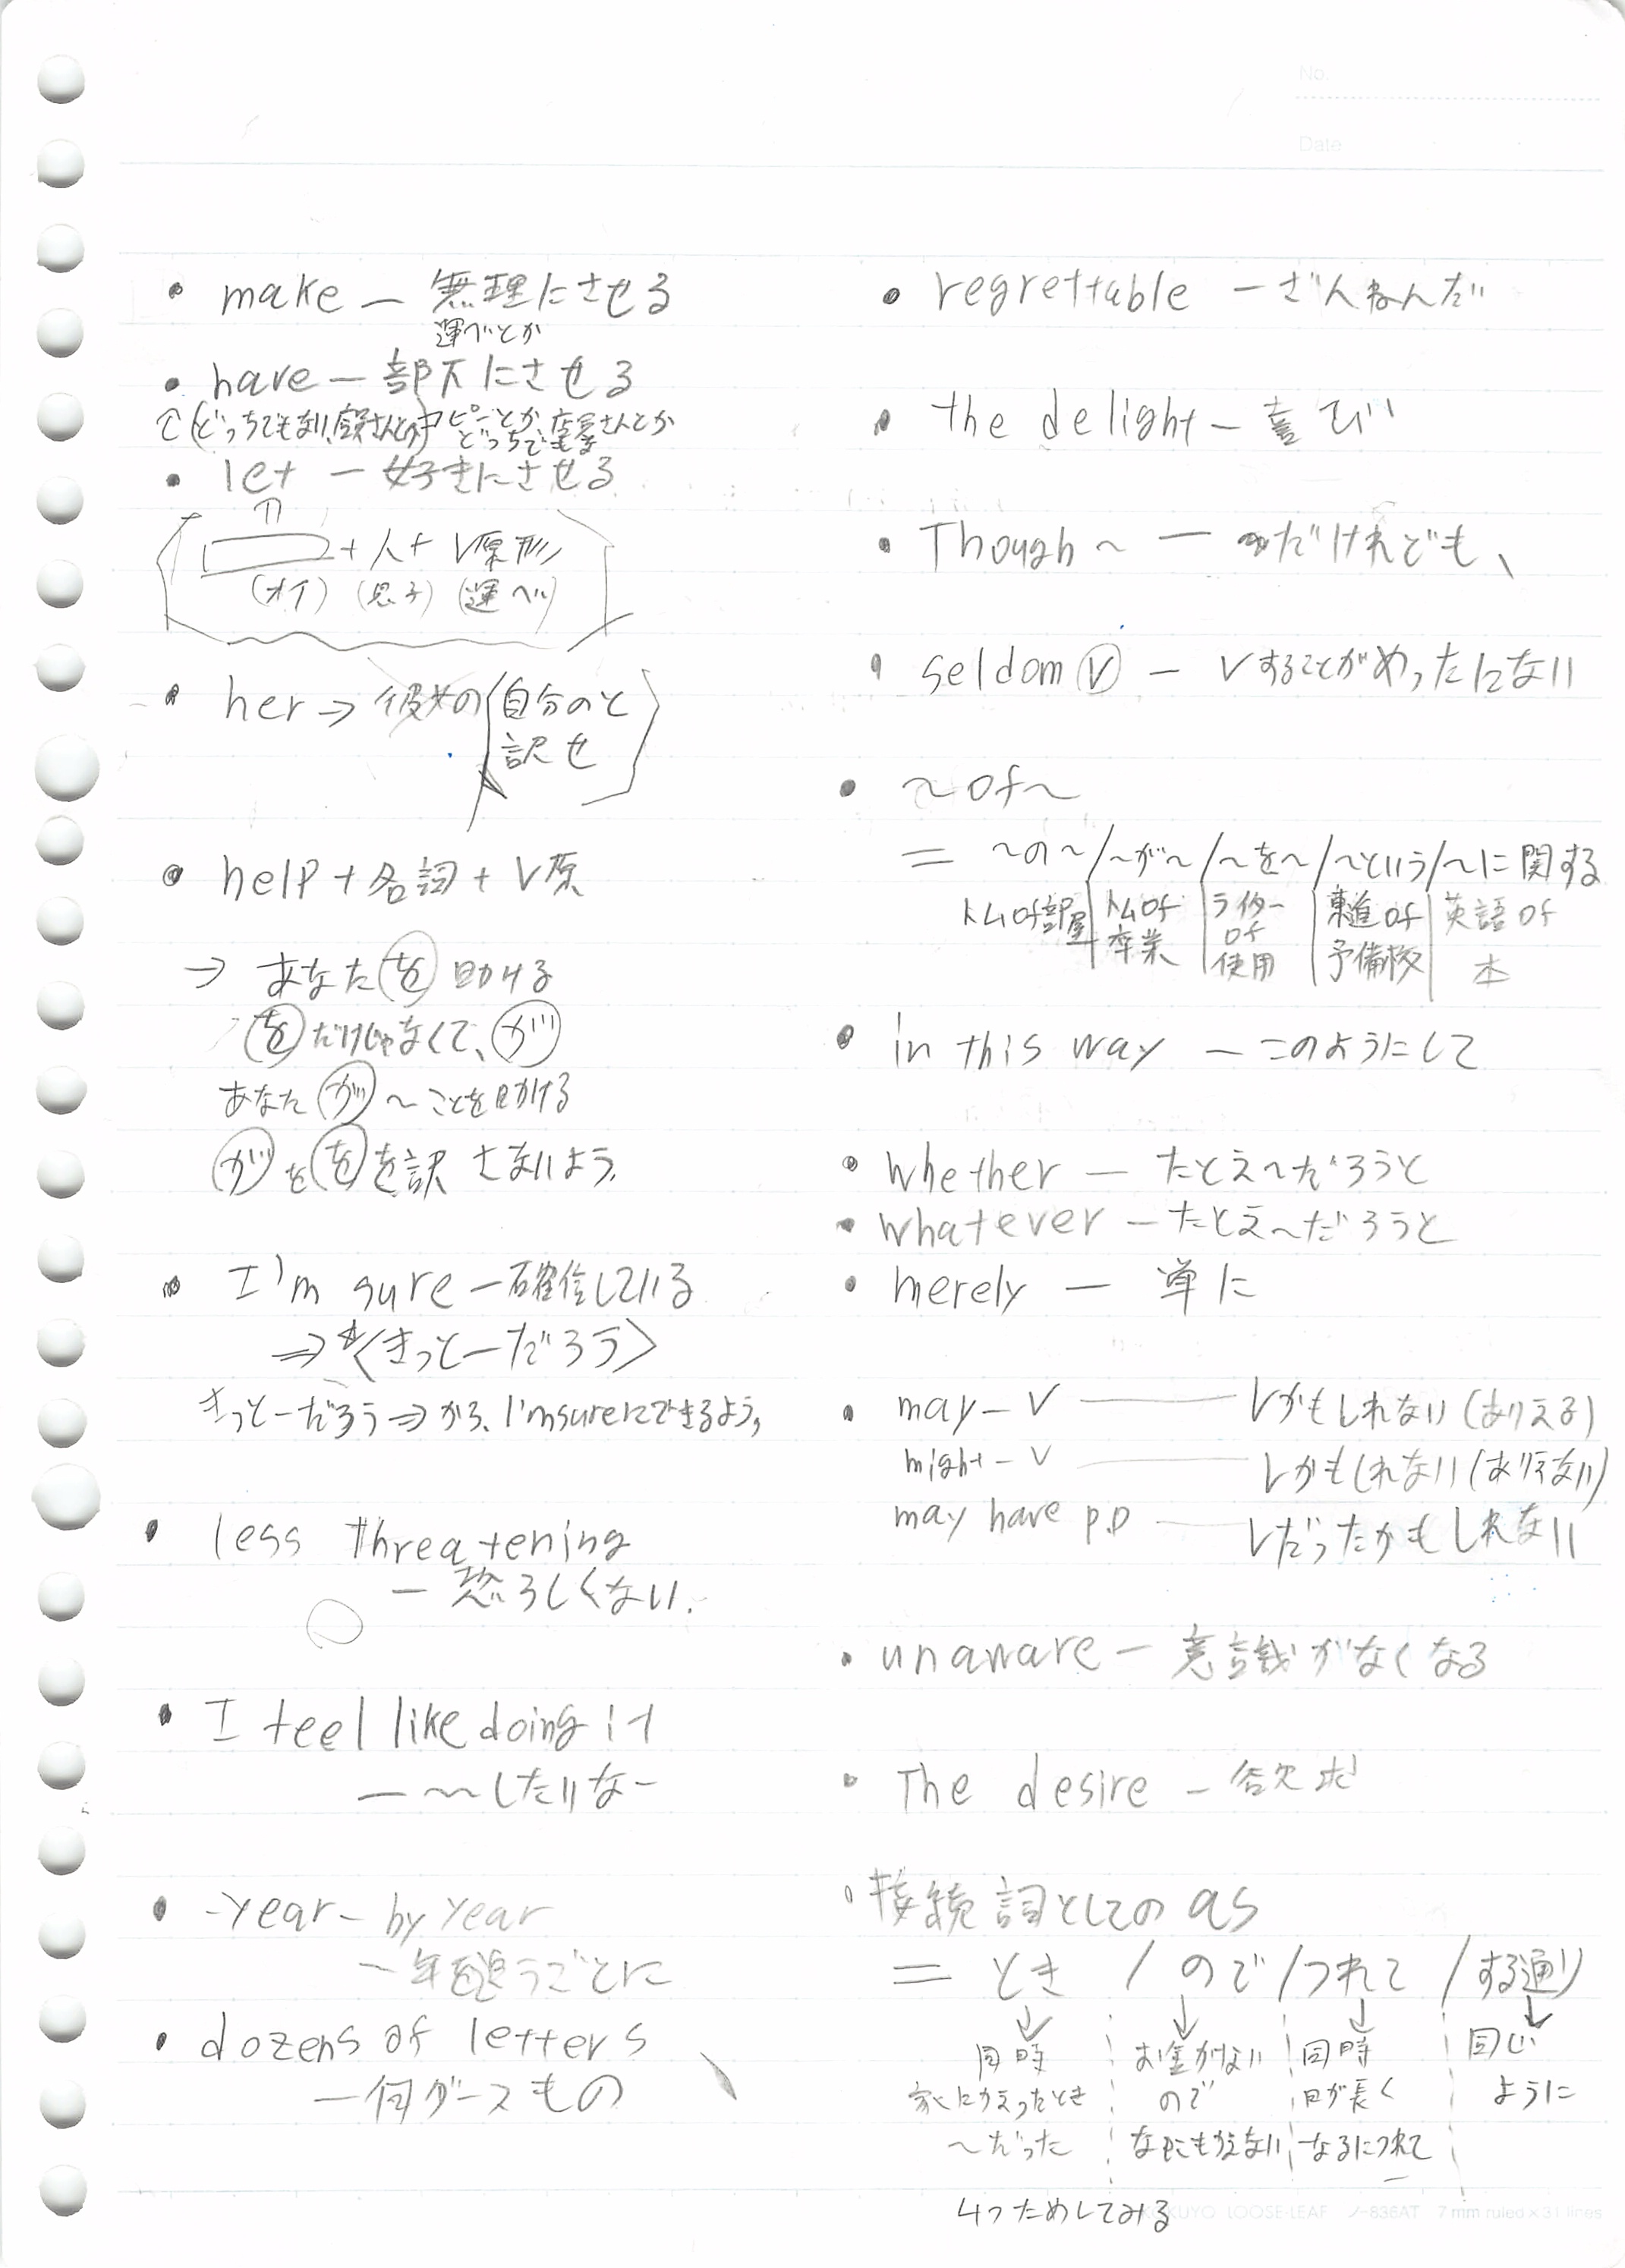 No.
Date
• make ー 無理にさせる
運べとか
• have ー 部下にさせる
コピーとか、店員さんとか
どっちでも
• let ー 好きにさせる
+ 人 + V原形
(オイ) (息子) (運べ)
• her → 彼女の
自分のと
訳せ
• help + 名詞 + V原
→ あなた を 助ける
を だけじゃなくて、が
あなた が 〜ことを助ける
が を を訳さないよう。
• I'm sure ー 確信している
⇒ *〈きっとーだろう〉
きっとーだろう ⇒ から、I'm sureにできるよう。
• less threatening
ー 恐ろしくない.
• I feel like doing it
ー 〜〜したいなー
• -year- by year
ー 年を追うごとに
• dozens of letters
ー何ダースもの
• regrettable ーざんねんだ
• the delight ー 喜び
• Though 〜 ー 〜だけれども、
• seldom Ⓥ ー Vすることがめったにない
• 〜 of 〜
= 〜の〜/〜が〜/〜を〜/〜という/〜に関する
トムof部屋 トムof ライター 東進of 英語of
卒業 of 予備校 本
使用
• in this way ー このようにして
• whether ー たとえ〜だろうと
• whatever ー たとえ〜だろうと
• merely ー 単に
• may ー V ー Vかもしれない(ありえる)
might ー V ー Vかもしれない(ありえない)
may have p.p ー Vだったかもしれない
• unaware ー 意識がなくなる
• The desire ー 欲求
• 接続詞としての as
= とき / ので / つれて / する通り
↓ ↓ ↓ ↓
同時 お金がない 同時 同じ
家にかえったとき ので 日が長く ように
〜だった なにもかえない なるにつれて
4つためしてみる
KOKUYO LOOSE-LEAF ノ-836AT 7 mm ruled × 31 lines